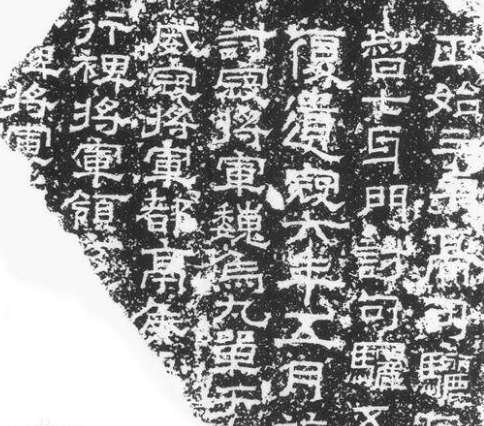 正始三年高句驪
督七牙門討句驪五
復遺寇六年五月
討寇將軍魏烏丸單于
威寇將軍都亭侯
行裨將軍領
裨將軍